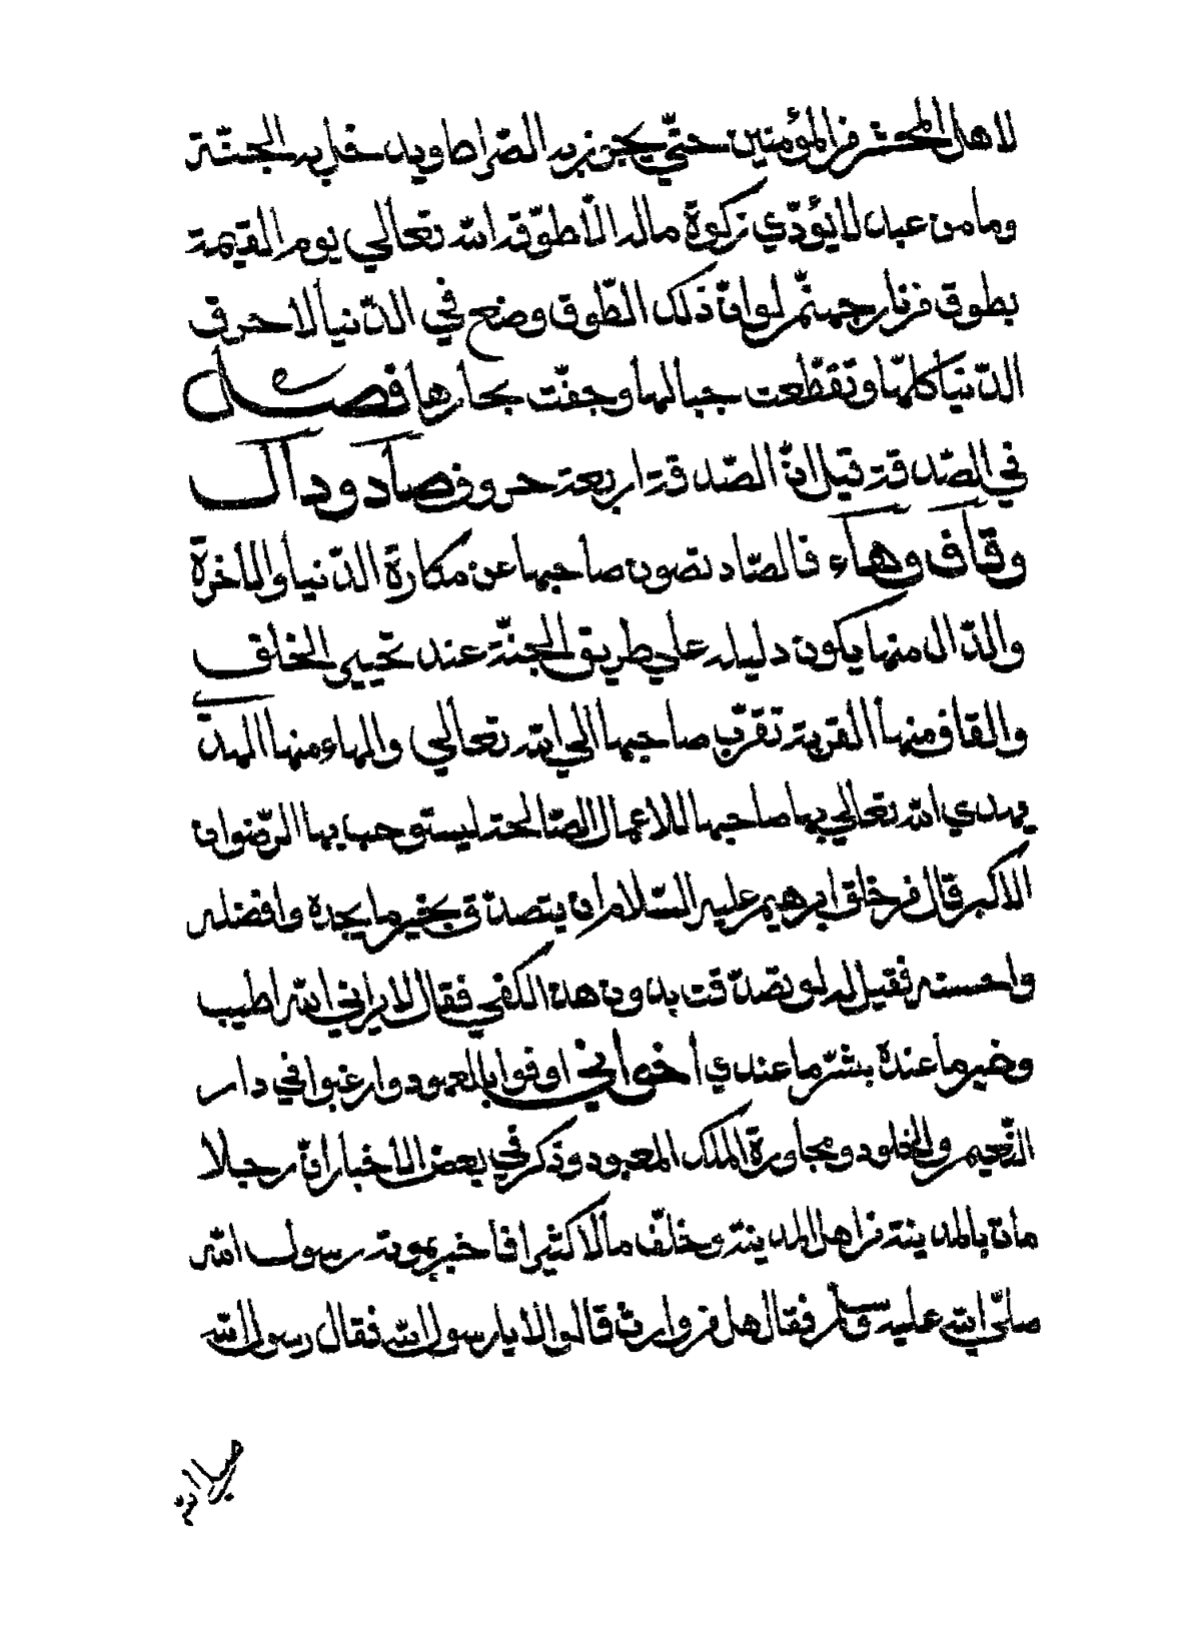 لاهل المحشر من المؤمنين حتّي يجوز به الصّراط ويدخل به الجنّة
وما من عبد لا يؤدّي زكوة ماله الّا طوّقه الله تعالي يوم القيمة
بطوق من نار جهنّم لو انّ ذلك الطّوق وضع في الدّنيا لاحرق
الدّنيا كلّها وتقطّعت جبالها وجفّت بحارها فصل
في الصّدقة قيل انّ الصّدقة اربعة حروف صاد ودال
وقاف وهاء فالصّاد تصون صاحبها عن مكارة الدّنيا والاخرة
والدّال منها يكون دليله علي طريق الجنّة عند تحيير الخلق
والقاف منها القربة تقرّب صاحبها الي الله تعالي والهاء منها الهديّ
يهدي الله تعالي بها صاحبها للاعمال الصّالحة ليستوجب بها الرّضوان
الاكبر قال من خلق ابرهيم عليه السّلام ان يتصدّق بخير ما يجده وافضله
واحسنه فقيل له لو تصدّقت بدون هذا لكفي فقال لا يراني الله اطيب
وخير ما عنده بشرّ ما عندي أخواني اوفوا بالعهود وارغبوا في دار
النّعيم والخلود ومجاورة الملك المعبود وذكر في بعض الاخبار انّ رجلا
مات بالمدينة من اهل المدينة وخلّف مالا كثيرا فاخبر بموته رسول الله
صلّي الله عليه وسلم فقال هل من وارث قالوا لا يا رسول الله فقال رسول الله
صلي الله